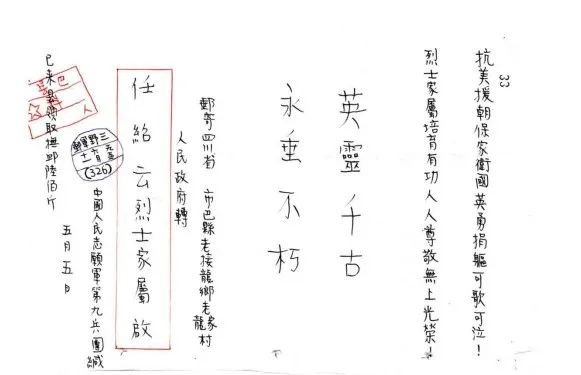 33
抗美援朝保家衛國英勇捐軀可歌可泣！
烈士家屬培育有功人人尊敬無上光榮！
英靈千古
永垂不朽
郵寄四川省 市巴縣老接龍鄉老龍家村
人民政府轉
任紹云烈士家屬啟
中國人民志願軍第九兵團緘
(326)
巴
人
已来縣領取撫卹陸佰斤
五月五日